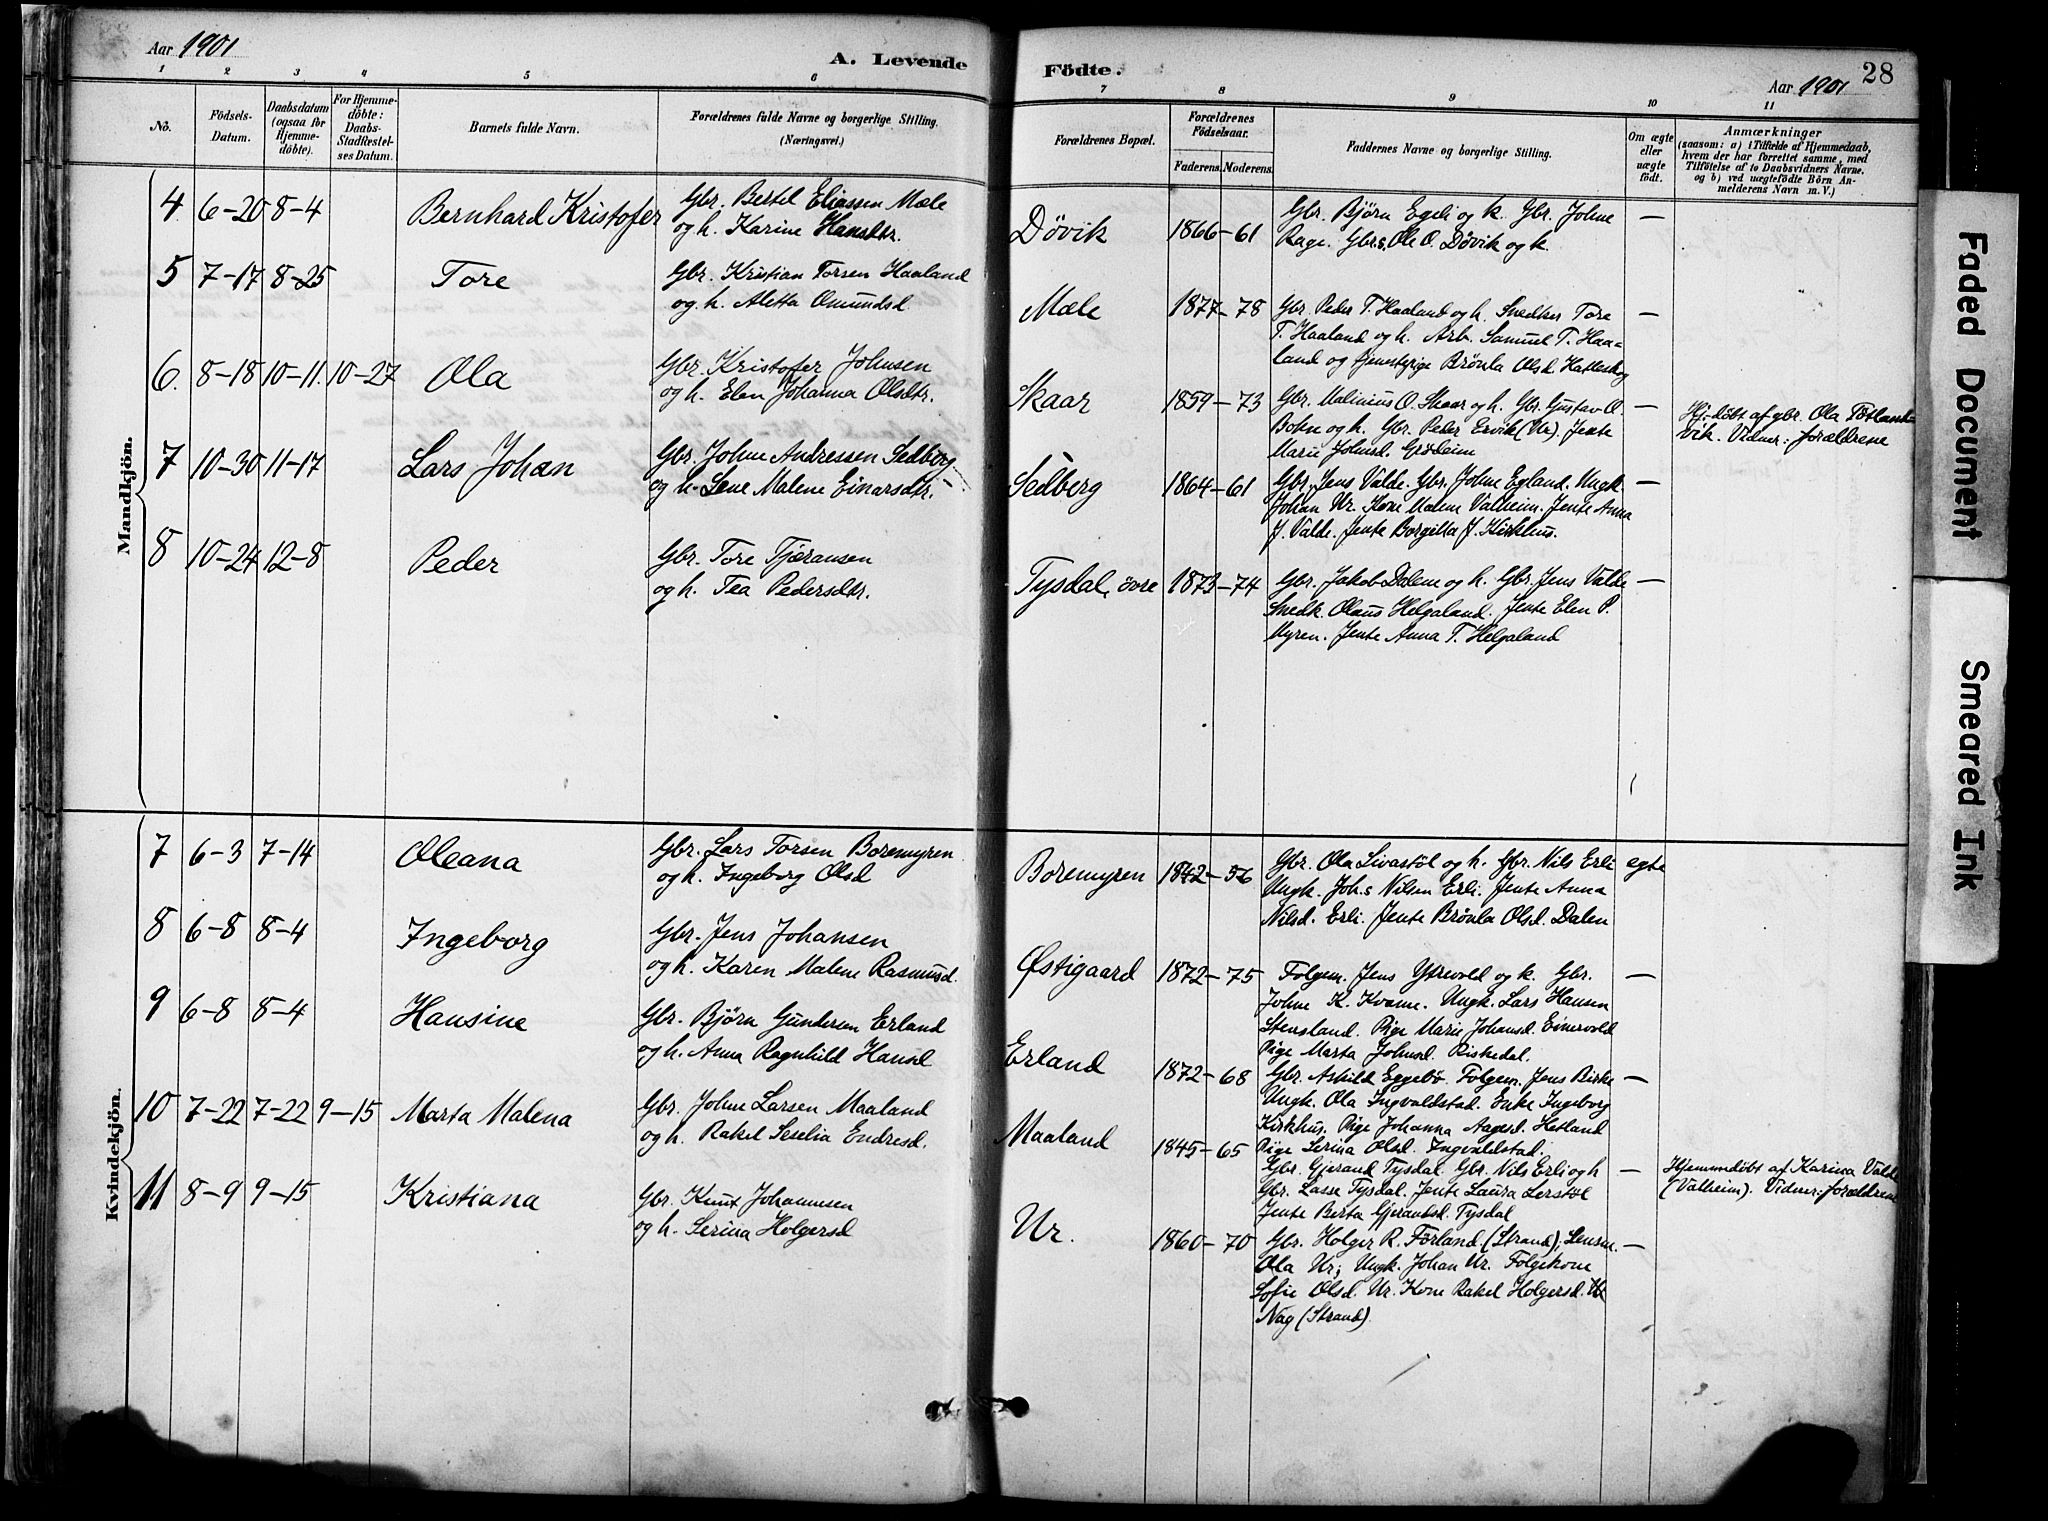 Aar 1901
A. Levende
1 2 3 4 5 6
No.
Födsels-Datum.
Daabsdatum (ogsaa för Hjemme-döbte).
For Hjemme-döbte: Daabs-Stadfæstel-ses Datum.
Barnets fulde Navn.
Forældrenes fulde Navne og borgerlige Stilling.
(Næringsvei.)
Mandkjön.
4 6-20 8-4 Bernhard Kristofer Gbr. Bertil Eliassen Mæle
og h. Karine Hansdtr.
5 7-17 8-25 Tore Gbr. Kristian Torsen Haaland
og h. Aletta Omundsd.
6. 8-18 10-11. 10-27 Ola Gbr. Kristofer Johnsen
og h. Elen Johanna Olsdtr.
7 10-30 11-17 Lars Johan Gbr. Johne Andressen Sedberg
og h. Lene Malene Einarsdtr.
8 10-24 12-8 Peder Gbr. Tore Tjæransen
og h. Tea Pedersdtr.
Kvindekjön.
7 6-3 7-14 Oleana Gbr. Lars Torsen Boremyren
og h. Ingeborg Olsd
8 6-8 8-4 Ingeborg Gbr. Jens Johansen
og h. Karen Malene Rasmusd.
9 6-8 8-4 Hansine Gbr. Bjørn Gundersen Erland
og h. Anna Ragnhild Hansd
10 7-22 7-22 9-15 Marta Malena Gbr. Johne Larsen Maaland
og h. Rakel Seselia Endresd.
11 8-9 9-15 Kristiana Gbr. Knut Johannesen
og h. Serina Holgersd
Födte.
Aar 1901
28
7 8 9 10 11
Forældrenes Bopæl.
Forældrenes Födselsaar.
Faderens. Moderens.
Faddernes Navne og borgerlige Stilling.
Om ægte eller uægte födt.
Anmærkninger
(saasom: a) i Tilfælde af Hjemmedaab,
hvem der har forrettet samme, med
Tilföielse af to Daabsvidners Navne,
og b) ved uægtefödte Börn An-
melderens Navn m. V.)
Døvik 1866-61 Gbr. Bjørn Egeli og k. Gbr. Johne —
Rage. Gbrs. Ole O. Døvik og k.
Mæle 1877-78 Gbr. Peder T. Haaland og h. Snedker Tore —
T. Haaland og h. Arb. Samuel T. Haa-
land og tjenestepige Brönla Olsd. Hatleskog
Skaar 1859-73 Gbr. Malinius O. Skaar og h. Gbr. Gustav O. —
Bohn og h. Gbr. Peder Ervik (Ur). Jente
Marie Johnsd. Grödeim
Hj.döbt af gbr. Ola Tötland
vik. Vidner: forældrene
Sedberg 1864-61 Gbr. Jens Valde. Gbr. Johne Egland. Ungk. —
Johan Ur. Kone Malene Valheim. Jente Anna
J. Valde. Jente Borgilla J. Kirkhus.
Tysdal, övre 1873-74 Gbr. Jakob Dalene og h. Gbr. Jens Valde —
Snedk. Olaus Helgaland. Jente Elen P.
Myren. Jente Anna T. Helgaland
Boremyren 1842-56 Gbr. Ola Livastöl og h. Gbr. Nils Erli egte
Ungk. Johs Nilsen Erli. Jente Anna
Nilsd. Erli. Jente Brönla Olsd. Dalen
Østigaard 1872-75 Folgem. Jens Ytrevold og k. Gbr. —
Johne K. Kvame. Ungk. Lars Hansen
Stensland. Pige Marie Johansd. Einervold
Pige Marta Johnsd. Riskedal.
Erland 1872-68 Gbr. Askild Eggebö. Folgem. Jens Birke —
Ungk. Ola Ingvaldstad. Enke Ingeborg
Kirkhus. Pige Johanna Aagesd. Hetland
Pige Serina Olsd. Ingvaldstad.
Maaland 1845-65 Gbr. Gjerand Tysdal. Gbr. Nils Erli og h —
Gbr. Lasse Tysdal. Jente Laura Lerstöl
Jente Berta Gjerandsd. Tysdal
Hjemmedöbt af Karina Valde
(Valheim). Vidner: forældrene
Ur. 1860-70 Gbr. Holger R. Förland. (Strand); Lensm. —
Ola Ur; Ungk. Johan Ur. Folgekone
Sofie Olsd. Ur. Kone Rakel Holgersd.
Nag (Strand)
Faded Document
Smeared Ink